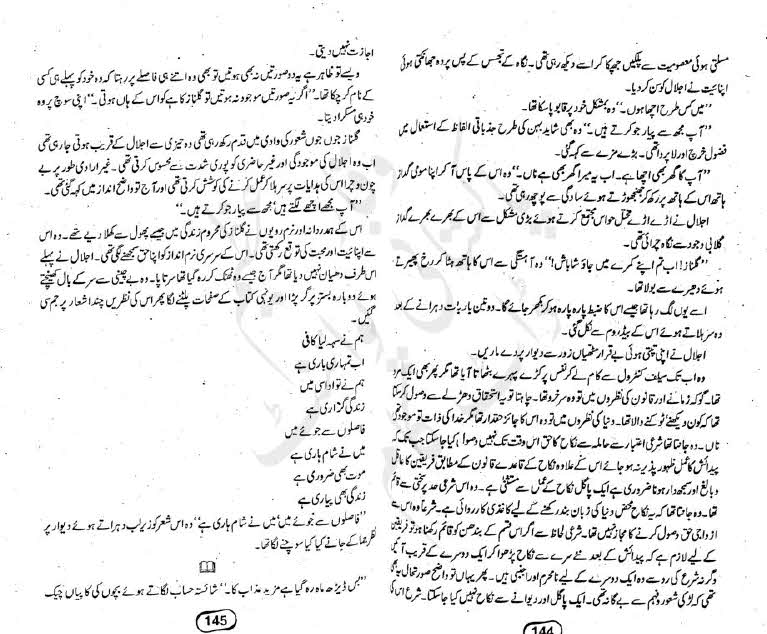 مسلتی ہوئی معصومیت سے پلکیں جھپکا کر اسے دیکھ رہی تھی۔ نگاہ کے تجسس کے پس پردہ جھانکتی ہوئی
اپنائیت نے اجلال کو سن کر دیا۔
”میں کس طرح اچھا ہوں۔“ وہ بمشکل خود پر قابو پا سکا تھا۔
”آپ مجھ سے پیار جو کرتے ہیں۔“ وہ بھی شاید بہن کی طرح جذباتی الفاظ کے استعمال میں
فضول خرچ اور لا پروا تھی۔ بڑے مزے سے کہہ گئی۔
”آپ کا گھر بھی اچھا ہے۔ اب یہ میرا گھر بھی ہے ناں۔“ وہ اس کے پاس آ کر اپنا مومی گداز
ہاتھ اس کے ہاتھ پر رکھ کر جھنجھوڑتے ہوئے سادگی سے پوچھ رہی تھی۔
اجلال نے اڑے اڑے مختل حواس مجتمع کرتے ہوئے بڑی مشکل سے اس کے بھرے بھرے گداز
گلابی وجود سے نگاہ چرائی تھی۔
”گلناز! اب تم اپنے کمرے میں جاؤ شاباش!“ وہ آہستگی سے اس کا ہاتھ ہٹا کر رخ پھیرتے
ہوئے دھیرے سے بولا تھا۔
اسے یوں لگ رہا تھا جیسے اس کا ضبط پارہ پارہ ہو کر بکھر جائے گا۔ دو تین بار بات دہرانے کے بعد
وہ سر ہلاتے ہوئے اس کے بیڈ روم سے نکل گئی۔
اجلال نے اپنی تپتی ہوئی بے قرار مٹھیاں زور سے دیوار پر دے ماریں۔
وہ اب تک سیلف کنٹرول سے کام لے کر نفس پر کڑے پہرے بٹھاتا آیا تھا مگر پھر بھی ایک مرد
تھا۔ گو کہ زمانے اور قانون کی نظروں میں تو وہ سرخرو تھا۔ چاہتا تو یہ استحقاق دھڑلے سے وصول کر سکتا
تھا کہ کون دیکھنے ٹوکنے والا تھا۔ دنیا کی نظروں میں تو وہ اس کا جائز حقدار تھا مگر خدا کی ذات تو موجود تھی
ناں۔ وہ جانتا تھا شرعی اعتبار سے حاملہ سے نکاح کا حق اس وقت تک نہیں وصولا کیا جا سکتا جب تک کہ
پیدائش کا عمل ظہور پذیر نہ ہو جائے اس کے علاوہ نکاح کے قاعدے قانون کے مطابق فریقین کا عاقل
و بالغ اور سمجھدار ہونا ضروری ہے ایک پاگل نکاح کے عمل سے مستثنیٰ ہے۔ وہ اس شرعی حد پر سختی سے قائم
تھا۔ وہ جانتا تھا کہ یہ نکاح محض دنیا کی زبان بند رکھنے کے لیے کاغذی کارروائی ہے۔ شرعاً وہ اس سے
ازدواجی حق وصول کرنے کا مجاز نہیں تھا۔ شرعی لحاظ سے اگر اس قسم کے بندھن کو قائم رکھنا ہو تو فریقین
کے لیے لازم ہے کہ پیدائش کے بعد نئے سرے سے نکاح پڑھوا کر ایک دوسرے کے قریب آئیں
وگرنہ شرع کی رو سے وہ ایک دوسرے کے لیے نامحرم اور اجنبی ہیں۔ پھر یہاں تو واضح صورتحال یہ
تھی کہ لڑکی شعور و فہم سے بے گانہ تھی۔ ایک پاگل اور دیوانے سے نکاح نہیں کیا جا سکتا۔ شرع اس کی
144
اجازت نہیں دیتی۔
ویسے تو ظاہر ہے یہ دو صورتیں نہ بھی ہوتیں تو بھی وہ اتنے ہی فاصلے پر رہتا کہ وہ خود کو پہلے ہی کسی
کے نام کر چکا تھا۔ ”اگر یہ صورتیں موجود نہ ہوتیں تو گلناز کا ہے کو اس کے ہاں ہوتی۔“ اپنی سوچ پر وہ
خود ہی مسکرا دیتا۔
گلناز جوں جوں شعور کی وادی میں قدم رکھ رہی تھی وہ تیزی سے اجلال کے قریب ہوتی جا رہی تھی
اب وہ اجلال کی موجودگی اور غیر حاضری کو پوری شدت سے محسوس کرتی تھی۔ غیر ارادی طور پر بے
چوں و چرا اس کی ہدایات پر سر ہلا کر عمل کرنے کی کوشش کرتی تھی اور آج تو واضح انداز میں کہہ گئی تھی۔
”آپ مجھے اچھے لگتے ہیں‘ مجھ سے پیار جو کرتے ہیں۔“
اس کے ہمدردانہ اور نرم رویوں نے گلناز کی محروم زندگی میں جیسے پھول سے کھلا دیے تھے۔ وہ اس
سے اپنائیت اور محبت کی توقع رکھتی تھی۔ اس کے سرسری نرم انداز کو اپنا حق سمجھنے لگی تھی۔ اجلال نے پہلے
اس طرف دھیان نہیں دیا تھا مگر آج جیسے وہ ٹھٹک کر رہ گیا تھا سرتاپا۔ وہ بے چینی سے سر کے بال کھینچتے
ہوئے دوبارہ بستر پر گر پڑا اور یونہی کتاب کے صفحات پلٹنے لگا پھر اس کی نظریں چند اشعار پر جم سی
گئیں۔
ہم نے سہہ لیا کافی
اب تمہاری باری ہے
ہم نے تو اداسی میں
زندگی گزاری ہے
فاصلوں سے جوئے میں
میں نے شام ہاری ہے
موت بھی ضروری ہے
زندگی بھی پیاری ہے
”فاصلوں سے جوئے میں‘ میں نے شام ہاری ہے“ وہ اس شعر کو زیر لب دہراتے ہوئے دیوار پر
نظر جما کے جانے کیا کیا سوچنے لگا تھا۔
”بس ڈیڑھ ماہ رہ گیا ہے مزید عذاب کا۔“ شائستہ حساب لگاتے ہوئے بچوں کی کاپیاں چیک
145